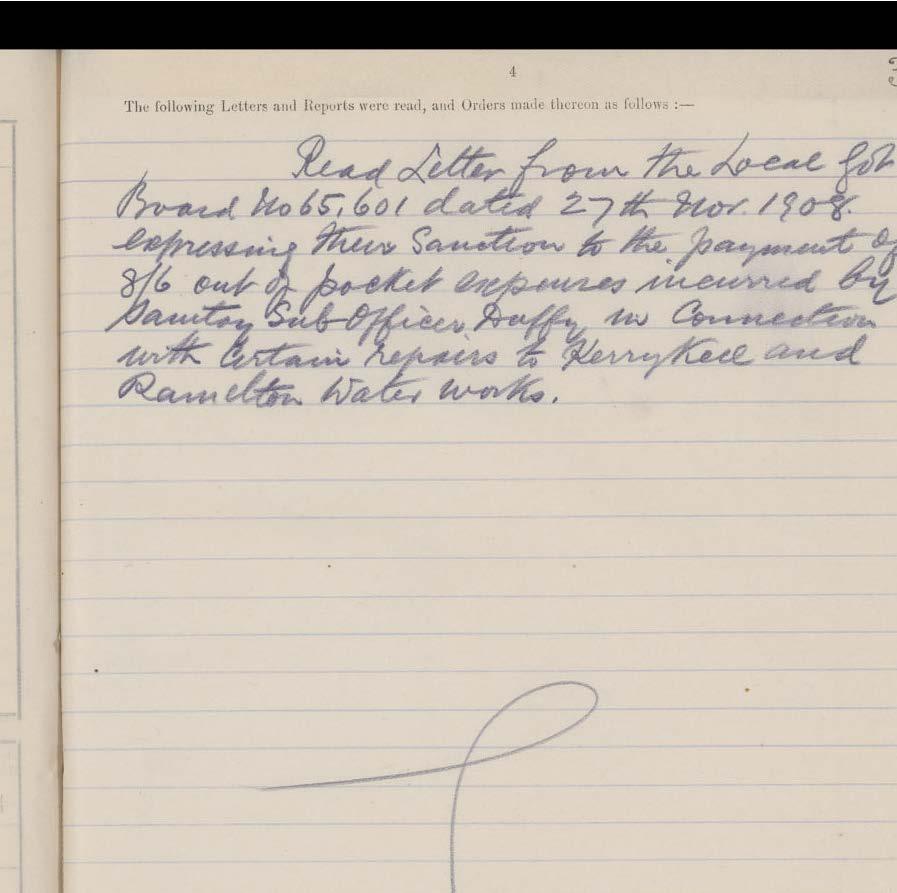 4
The following Letters and Reports were read, and Orders made thereon as follows :—
Read Letter from the Local Gov
Board No 65,601 dated 27th Nov. 1908.
expressing their Sanction to the payment of
8/6 out of pocket expenses incurred by
Sanitary Sub Officer Duffy in Connection
with Certain repairs to Kerrykeel and
Ramelton Water Works.